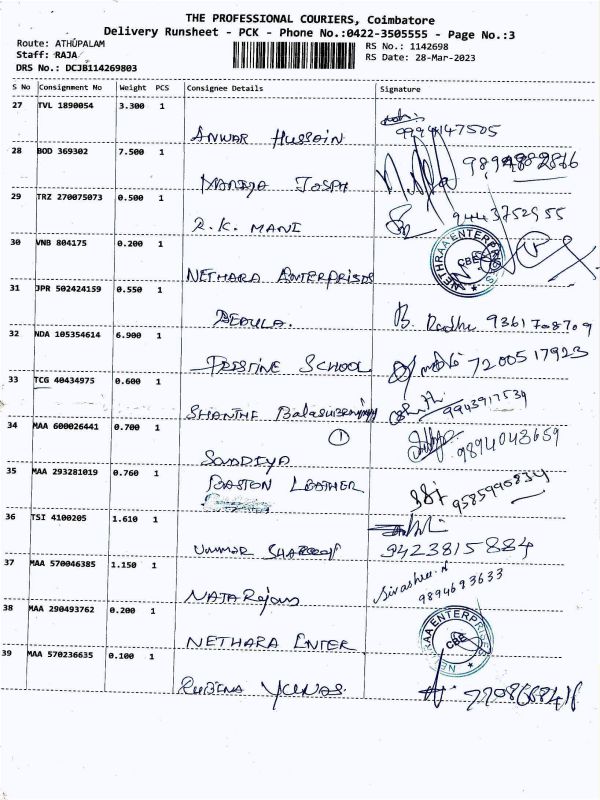 THE PROFESSIONAL COURIERS, Coimbatore
Delivery Runsheet - PCK - Phone No.:0422-3505555 - Page No.:3
Route: ATHUPALAM
RS No.: 1142698
Staff: RAJA
RS Date: 28-Mar-2023
DRS No.: DCJB114269803
S No Consignment No Weight PCS Consignee Details Signature
27 TVL 1890054 3.300 1
ANWAR HUSSAIN 9994147505
28 BOD 369302 7.500 1
JOSPH
29 TRZ 270075073 0.500 1
R.K. MANI 9443752955
30 VNB 804175 0.200 1
NETHARA ENTERPRISES
NETHRAA ENTERPRISES CBE
31 JPR 502424159 0.550 1
B. 9361708709
32 NDA 105354614 6.900 1
PRISTINE SCHOOL 7200517923
33 TCG 40434975 0.600 1
9943917534
34 MAA 600026441 0.700 1
1
SOWDIYA 9894043659
35 MAA 293281019 0.760 1
BASTON LEATHER 9585990834
36 TSI 4100205 1.610 1
UMMAR 9423815884
37 MAA 570046385 1.150 1
NATARajan Sivashree.N 9894693633
38 MAA 290493762 0.200 1
NETHARA ENTER
NETHRAA ENTERPRISES CBE
39 MAA 570236635 0.100 1
RUBINA YUNAS.